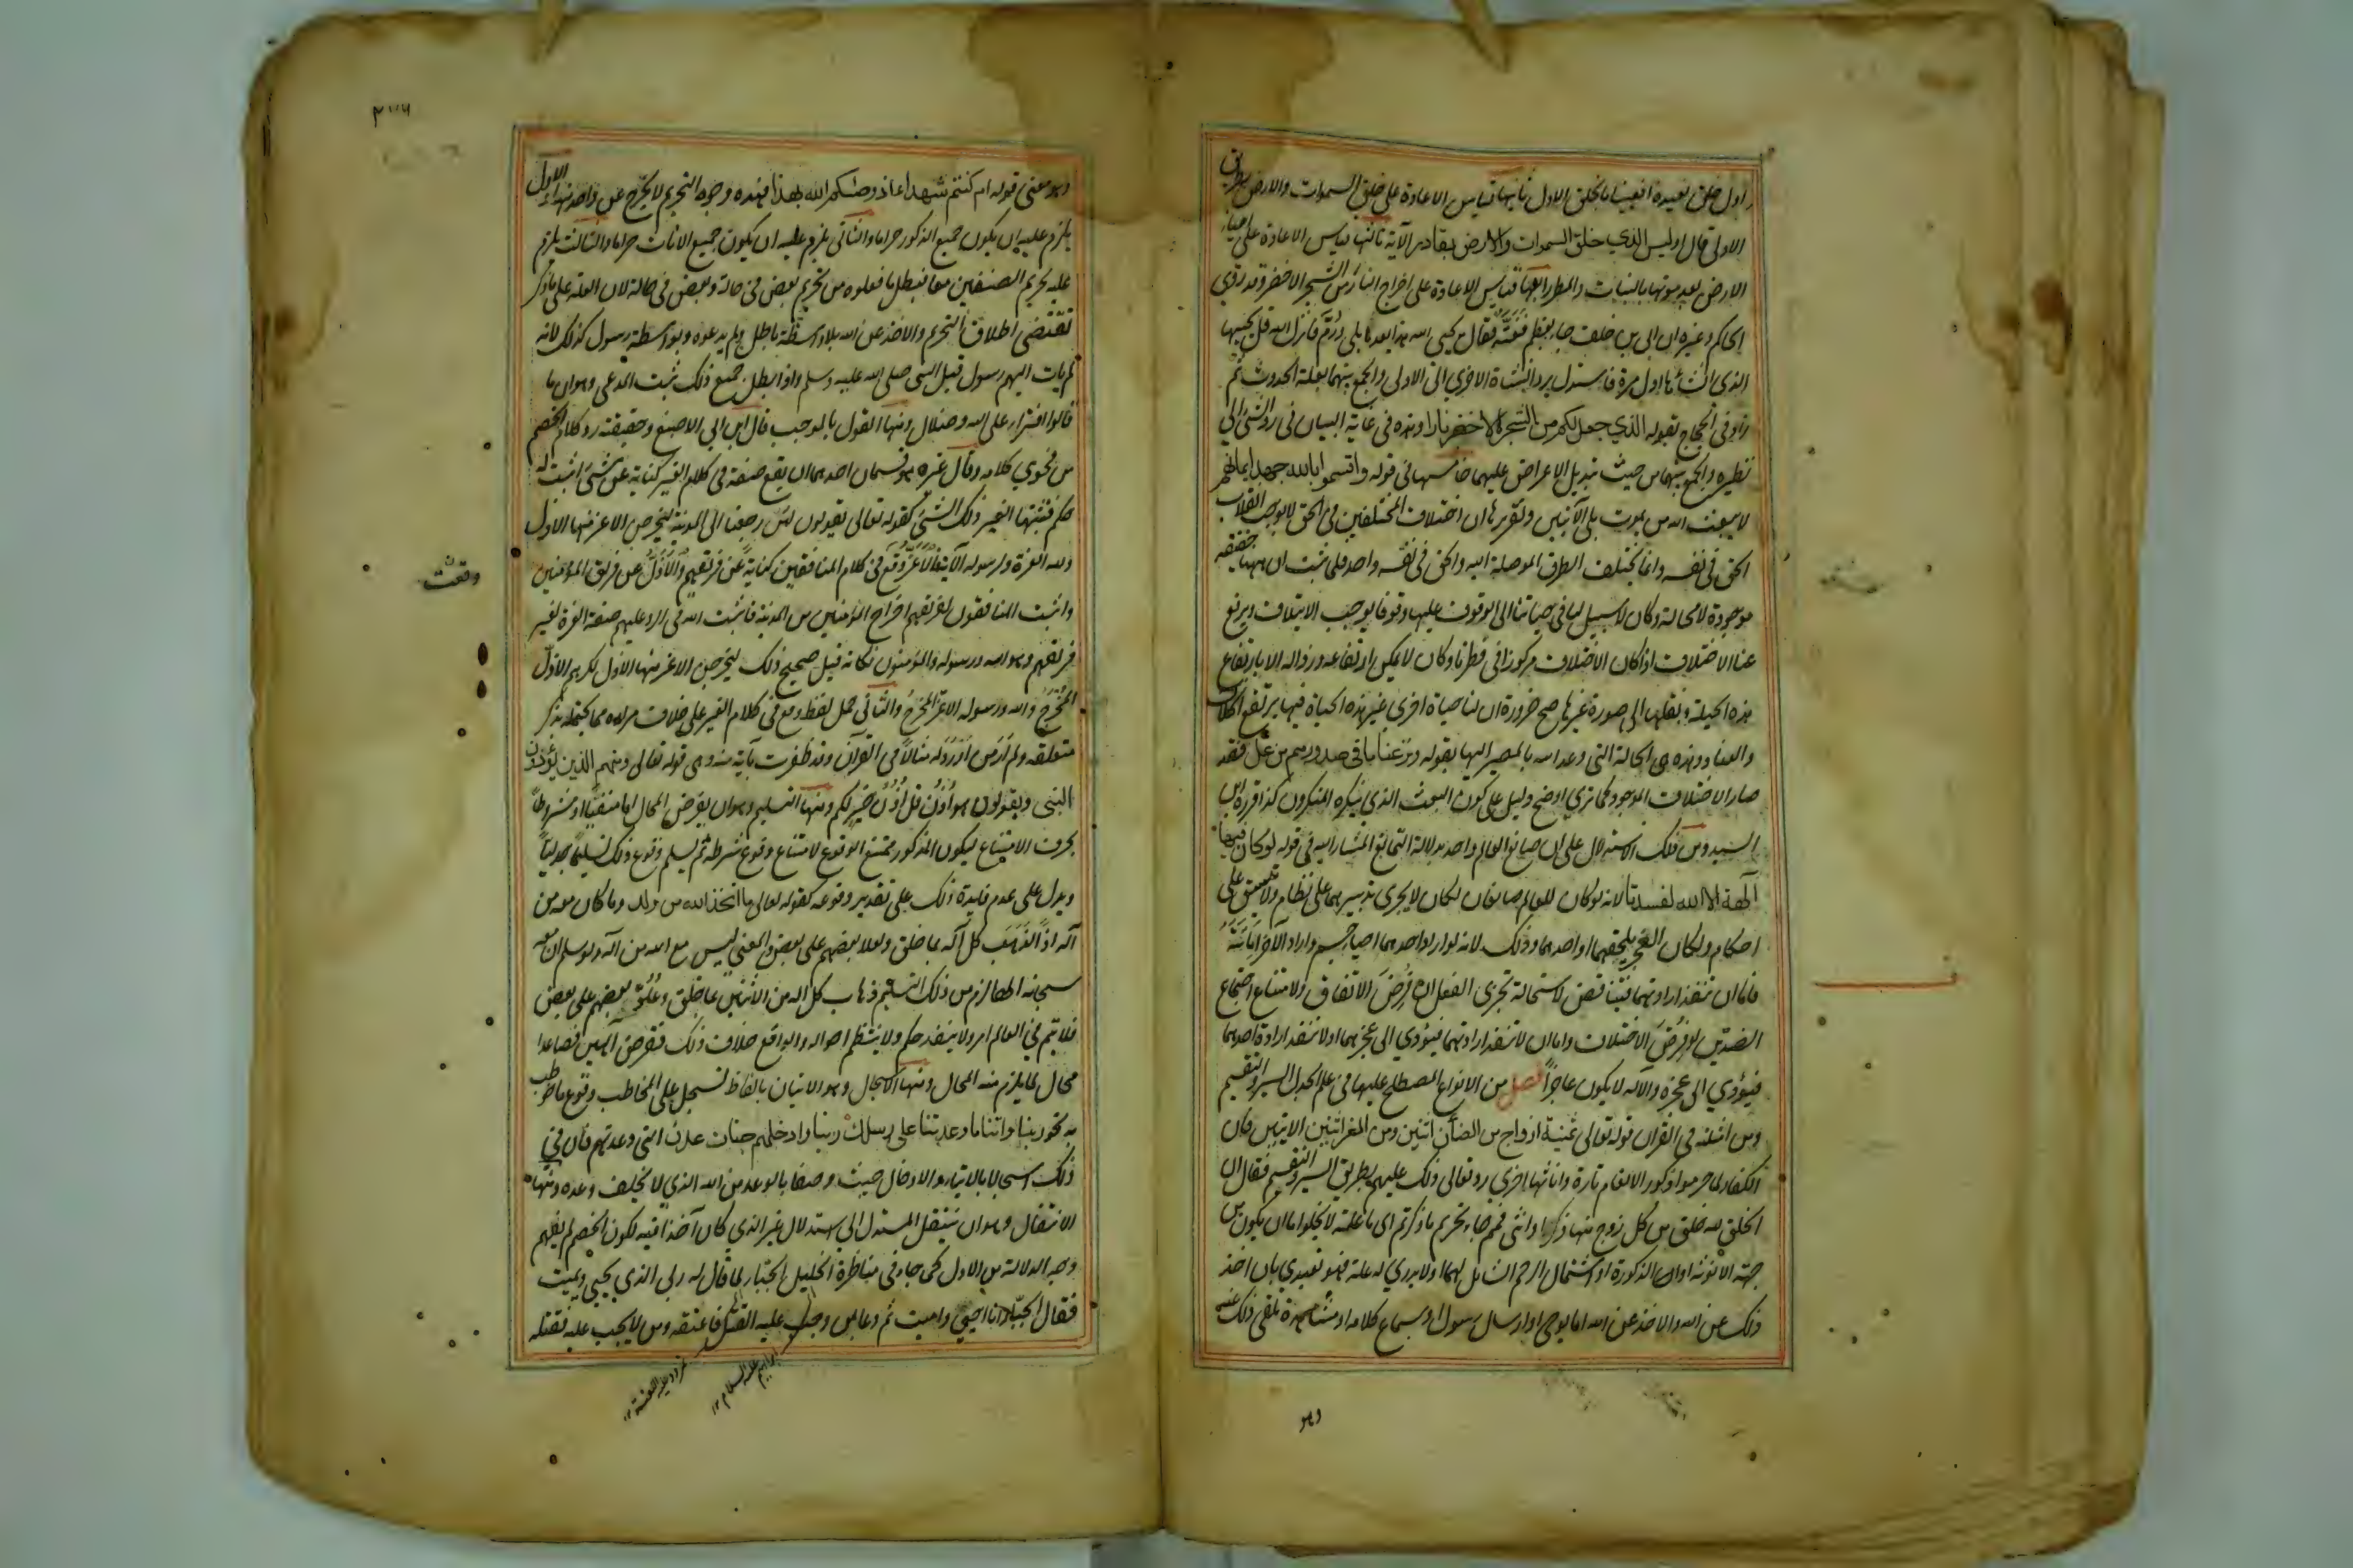 اول خلق نعيده افعيينا بالخلق الاول ثانيها قياس الاعادة على خلق السموات والارض بطريق
الاولى قال اوليس الذي خلق السموات والارض بقادر الآية ثالثها قياس الاعادة على احياء
الارض بعد موتها بالنبات والمطر رابعها قياس الاعادة على اخراج النار من الشجر الاخضر وقد روى
الحاكم وغيره ان ابي بن خلف جاء بعظم ففته فقال يحيي الله هذا بعد ما بلى ورم فانزل الله قل يحييها
الذي انشأها اول مرة فاستدل برد النشاة الاخرى الى الاولى والجمع بينهما بعلة الحدوث ثم
زاد في الحجاج بقوله الذي جعل لكم من الشجر الاخضر نارا وهذه في غاية البيان في رد الشئ الى
نظيره والجمع بينهما من حيث تبديل الاعراض عليهما خامسها في قوله واقسموا بالله جهد ايمانهم
لا يبعث الله من يموت بلى الآيتين وتقريرها ان اختلاف المختلفين في الحق لا يوجب انقلاب
الحق في نفسه وانما تختلف الطرق الموصلة اليه والحق في نفسه واحد فلما ثبت ان ههنا حقيقة
موجودة لا محالة وكان لا سبيل لنا في حياتنا الى الوقوف عليها وقوفا يوجب الايتلاف ويرفع
عنا الاختلاف اذ كان الاختلاف مركوزا في فطرنا وكان لا يمكن ارتفاعه وزواله الا بارتفاع
هذه الجبلة ونقلها الى صورة غيرها صح ضرورة ان لنا حياة اخرى غير هذه الحياة فيها يرتفع الخلاف
والعناد وهذه هي الحالة التي وعد الله بالمصير اليها بقوله ونزعنا ما في صدورهم من غل فقد
صار الاختلاف الموجود كما ترى اوضح دليل على كون البعث الذي ينكره المنكرون كذا قرره ابن
السيد ومن ذلك الاستدلال على ان صانع العالم واحد بدلالة التمانع المشار اليه في قوله لو كان فيهما
آلهة الا الله لفسدتا لانه لو كان للعالم صانعان لكان لا يجري تدبيرهما على نظام ولا يتسق على
احكام ولكان العجز يلحقهما او احدهما وذلك لانه لو اراد احدهما احياء جسم واراد الآخر اماتته
فاما ان تنفذ ارادتهما فيتناقض لاستحالة تجزى الفعل ان فرض الاتفاق ولامتناع اجتماع
الضدين لو فرض الاختلاف واما ان لا تنفذ ارادتهما فيؤدي الى عجزهما او لا تنفذ ارادة احدهما
فيؤدي الى عجزه والآله لا يكون عاجزا فصل من الانواع المصطلح عليها في علم الجدل السبر والتقسيم
ومن امثلته في القرآن قوله تعالى ثمنية ازواج من الضأن اثنين ومن المعز اثنين الايتين فان
الكفار لما حرموا ذكور الانعام تارة واناثها اخرى رد تعالى ذلك عليهم بطريق السبر والتقسيم فقال ان
الخلق لله خلق من كل زوج منها ذكرا وانثى فمم جاء تحريم ما ذكرتم اي ما علته لا يخلوا اما ان يكون من
جهة الانوثة او الذكورة او اشتمال الرحم الشامل لهما او لا يدرى له علة فهو تعبدي بان اخذ
ذلك عن الله والاخذ عن الله اما بوحي او ارسال رسول او بسماع كلامه او مشاهدة تلقى ذلك عنه
وهو
وهو معنى قوله ام كنتم شهداء اذ وصيكم الله بهذا فهذه وجوه التحريم لا يخرج عن واحد منها الاول
يلزم عليه ان يكون جميع الذكور حراما والثاني يلزم عليه ان يكون جميع الاناث حراما والثالث يلزم
عليه تحريم الصنفين معا فبطل ما فعلوه من تحريم بعض في حالة وبعض في حالة لان العلة على ما ذكر
تقتضي اطلاق التحريم والاخذ عن الله بلا واسطة باطل ولم يدعوه وبواسطة رسول كذلك لانه
لم يات اليهم رسول قبل النبي صلى الله عليه وسلم واذا بطل جميع ذلك ثبت المدعى وهو ان ما
قالوا افتراء على الله وضلال ومنها القول بالموجب قال ابن ابي الاصبع وحقيقته رد كلام الخصم
من فحوى كلامه وقال غيره هو قسمان احدهما ان يقع صفة في كلام الغير كناية عن شئ اثبت له
حكم فتثبتها لغير ذلك الشئ كقوله تعالى يقولون لئن رجعنا الى المدينة ليخرجن الاعز منها الاذل
ولله العزة ولرسوله الآية فالاعز وقع في كلام المنافقين كناية عن فريقهم والاذل عن فريق المؤمنين
وقعت
واثبت المنافقون لفريقهم اخراج المؤمنين من المدينة فاثبت الله في الرد عليهم صفة العزة لغير
فريقهم وهو الله ورسوله والمؤمنون فكانه قيل صحيح ذلك ليخرجن الاعز منها الاذل لكن هم الاذل
المخرج والله ورسوله الاعز المخرج والثاني حمل لفظ وقع في كلام الغير على خلاف مراده مما يحتمله بذكر
متعلقه ولم ار من اورد له مثالا في القرآن وقد ظفرت بآية منه وهي قوله تعالى ومنهم الذين يؤذون
النبي ويقولون هو اذن قل اذن خير لكم ومنها التسليم وهو ان يفرض المحال اما منفيا او مشروطا
بحرف الامتناع ليكون المذكور ممتنع الوقوع لامتناع وقوع شرطه ثم يسلم وقوع ذلك تسليما جدليا
ويدل على عدم فايدة ذلك على تقدير وقوعه كقوله تعالى ما اتخذ الله من ولد وما كان معه من
آله اذا لذهب كل آله بما خلق ولعلا بعضهم على بعض والمعنى ليس مع الله من آله ولو سلم ان معه
سبحانه الها لزم من ذلك التسليم ذهاب كل اله من الاثنين بما خلق وعلو بعضهم على بعض
فلا يتم في العالم امر ولا ينفذ حكم ولا ينتظم احواله والواقع خلاف ذلك ففرض آلهين فصاعدا
محال لما يلزم منه المحال ومنها الاسجال وهو الاتيان بالفاظ تسجل على المخاطب وقوع ما خوطب
به نحو ربنا واتنا ما وعدتنا على رسلك ربنا وادخلهم جنات عدن التي وعدتهم فان في
ذلك اسجالا بالايتاء والادخال حيث وصفا بالوعد من الله الذي لا يخلف وعده ومنها
الانتقال وهو ان ينتقل المستدل الى استدلال غير الذي كان آخذا فيه لكون الخصم لم يفهم
وجه الدلالة من الاول كما جاء في مناظرة الخليل الجبار لما قال له ربي الذي يحيي ويميت
فقال الجبار انا احيي واميت ثم دعا بمن وجب عليه القتل فاعتقه ومن لا يجب عليه فقتله
ابراهيم عليه السلام ١٢
نمرود عليه اللعنة ١٢